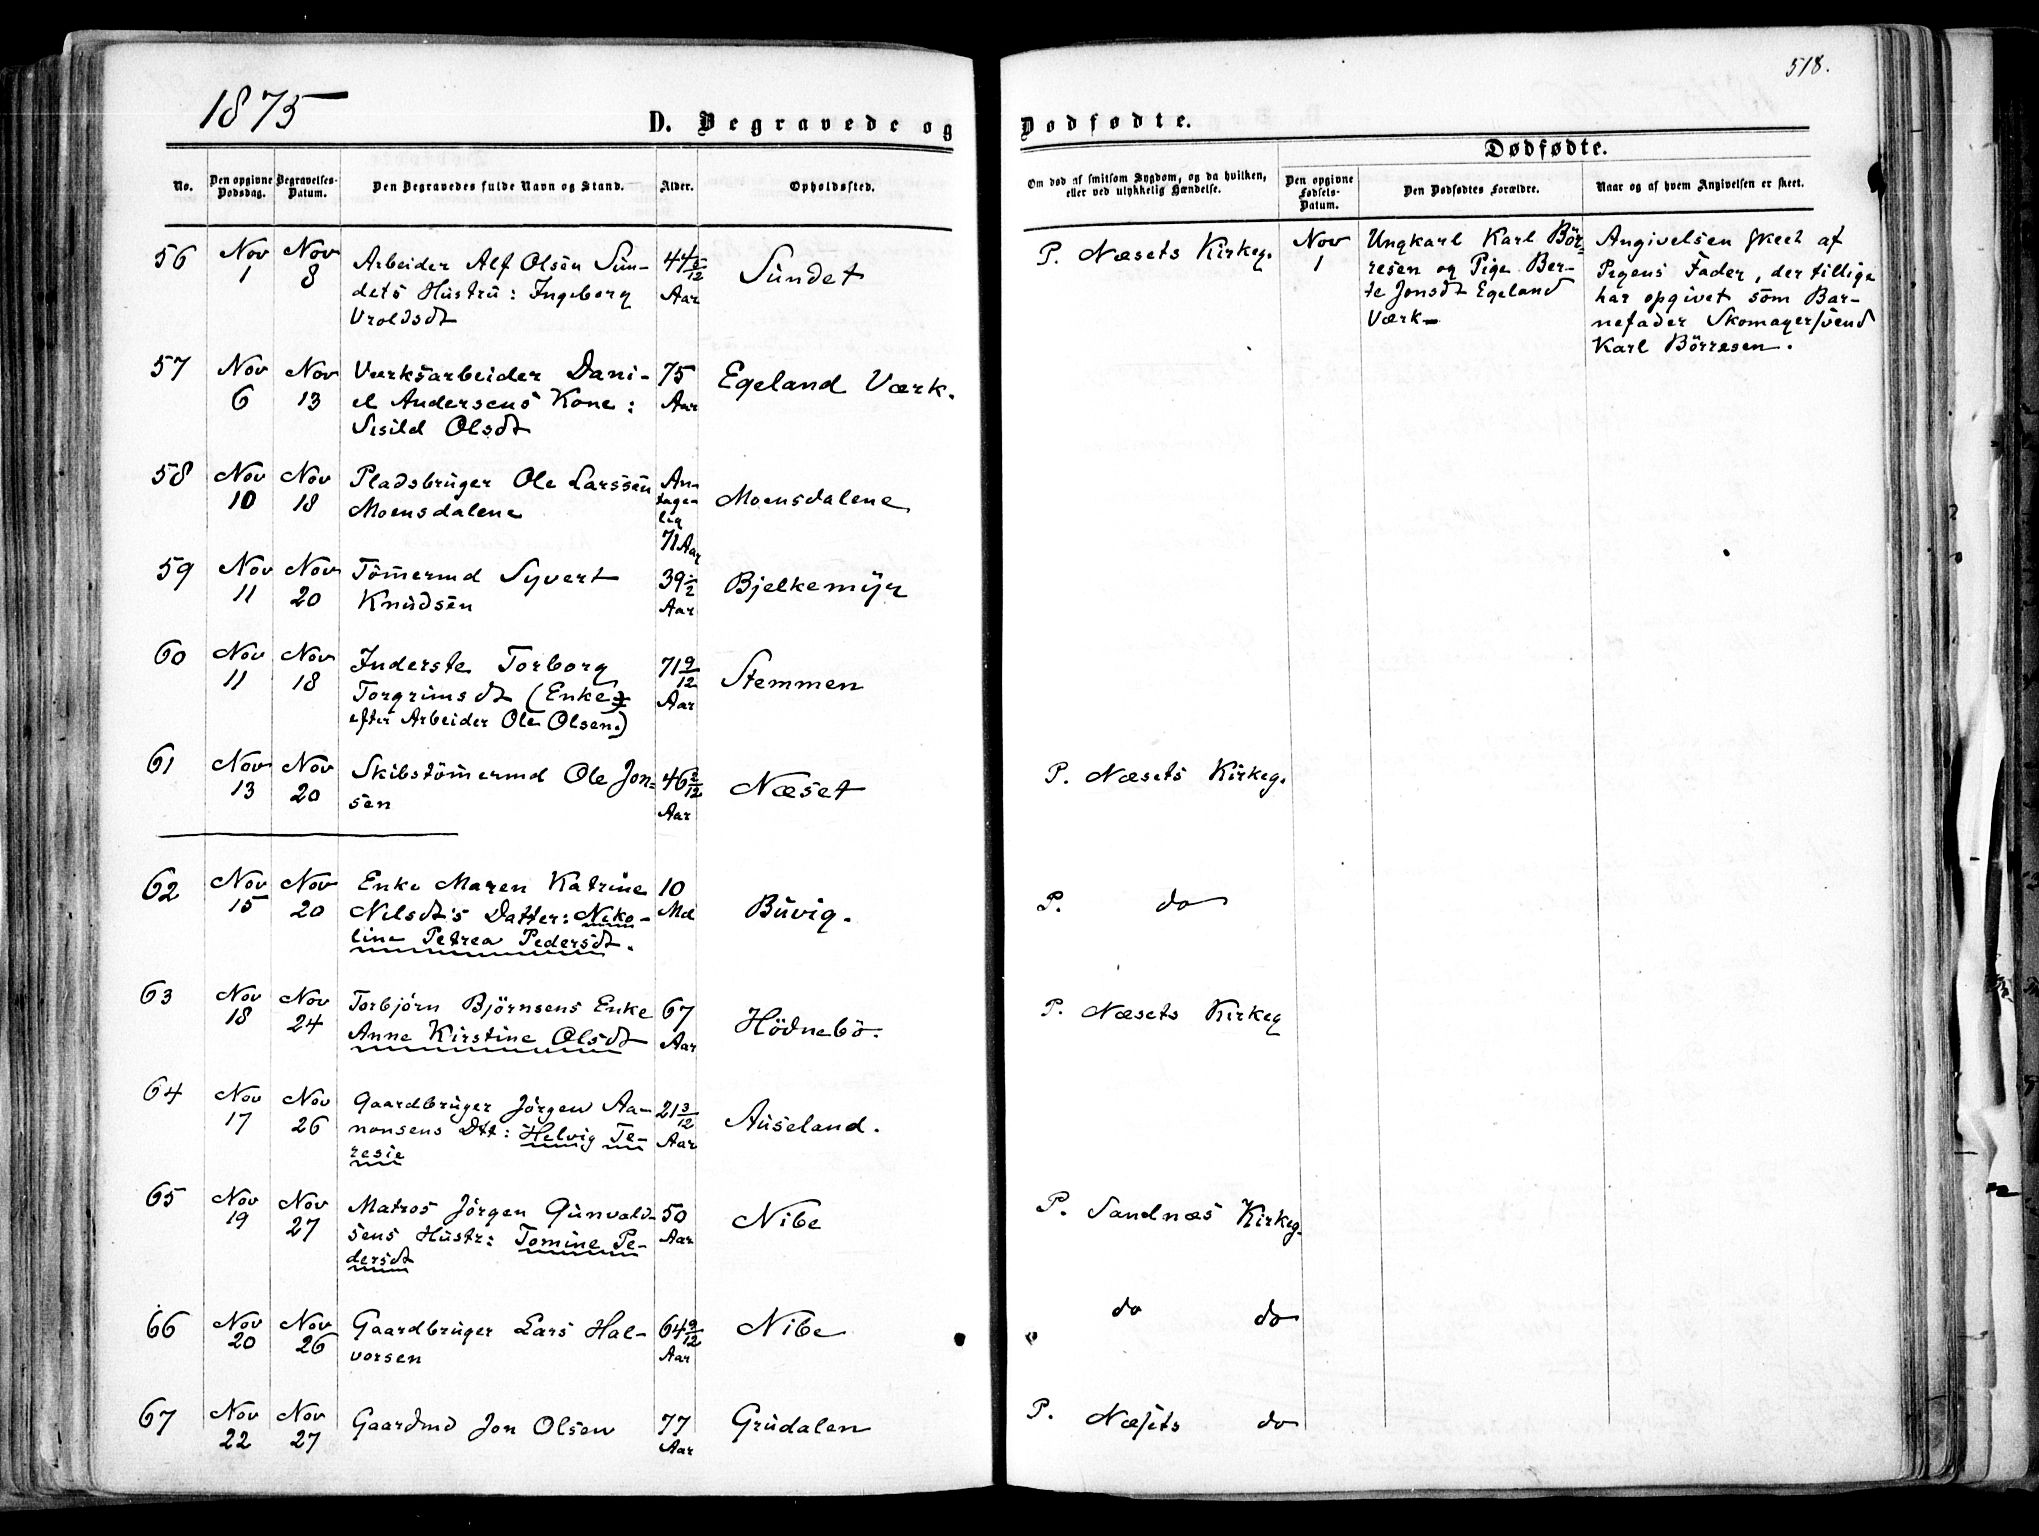 1875
518.
D. Begravede og Dødfødte.
Dødfødte.
No.
Den opgivne Dødsdag.
Begravelses-Datum.
Den Begravedes fulde Navn og Stand.
Alder.
Opholdssted.
Om død af smitsom Sygdom, og da hvilken,
eller ved ulykkelig Hændelse.
Den opgivne Fødsels-Datum.
Den Dødfødtes Forældre.
Naar og af hvem Angivelsen er skeet.
56 Nov 1 Nov 8
Arbeider Alf Olsen Sun-
dets Hustru: Ingeborg
Vroldsdt
44 5/12 Aar
Sundet
P. Næsets Kirkeg.
Nov 1
Ungkarl Karl Bör-
resen og Pige Ber-
te Jonsdt Egeland
Værk
Angivelsen skeet af
Pigens Fader, der tillige
har opgivet som Bar-
nefader Skomagersvend
Karl Börresen.
57 Nov 6 Nov 13
Værksarbeider Dani-
el Andersens Kone:
Sisild Olsdt
75 Aar
Egeland Værk.
58 Nov 10 Nov 18
Pladsbruger Ole Larssen
Moensdalene
An-
tage-
lig
71 Aar
Moensdalene
59 Nov 11 Nov 20
Tömermd Syvert
Knudsen
39 1/2 Aar
Bjelkemyr
60 Nov 11 Nov 18
Inderste Torborg
Torgrimsdt (Enke
efter Arbeider Ole Olsen.)
71 9/12 Aar
Stemmen
61 Nov 13 Nov 20
Skibstömermd Ole Jon-
sen
46 2/12 Aar
Næset
P. Næsets Kirkeg.
62 Nov 15 Nov 20
Enke Maren Katrine
Nilsdt's Datter: Niko-
line Petrea Pedersdt.
10 Md
Buvig.
P. do
63 Nov 18 Nov 24
Torbjörn Björnsens Enke
Anne Kirstine Olsdt
67 Aar
Hödnebö.
P. Næsets Kirkeg
64 Nov 17 Nov 26
Gaardbruger Jörgen Aa-
nonsens Dtt: Helvig Te-
resie
21 3/12 Aar
Auseland.
65 Nov 19 Nov 27
Matros Jörgen Gunvald-
sens Hustr: Tomine Pe-
dersdt
50 Aar
Nibe
P. Sandnæs Kirkeg.
66 Nov 20 Nov 26
Gaardbruger Lars Hal-
vorsen
64 9/12 Aar
Nibe
" do do
67 Nov 22 Nov 27
Gaardmd Jon Olsen
77 Aar
Grudalen
P. Næsets do